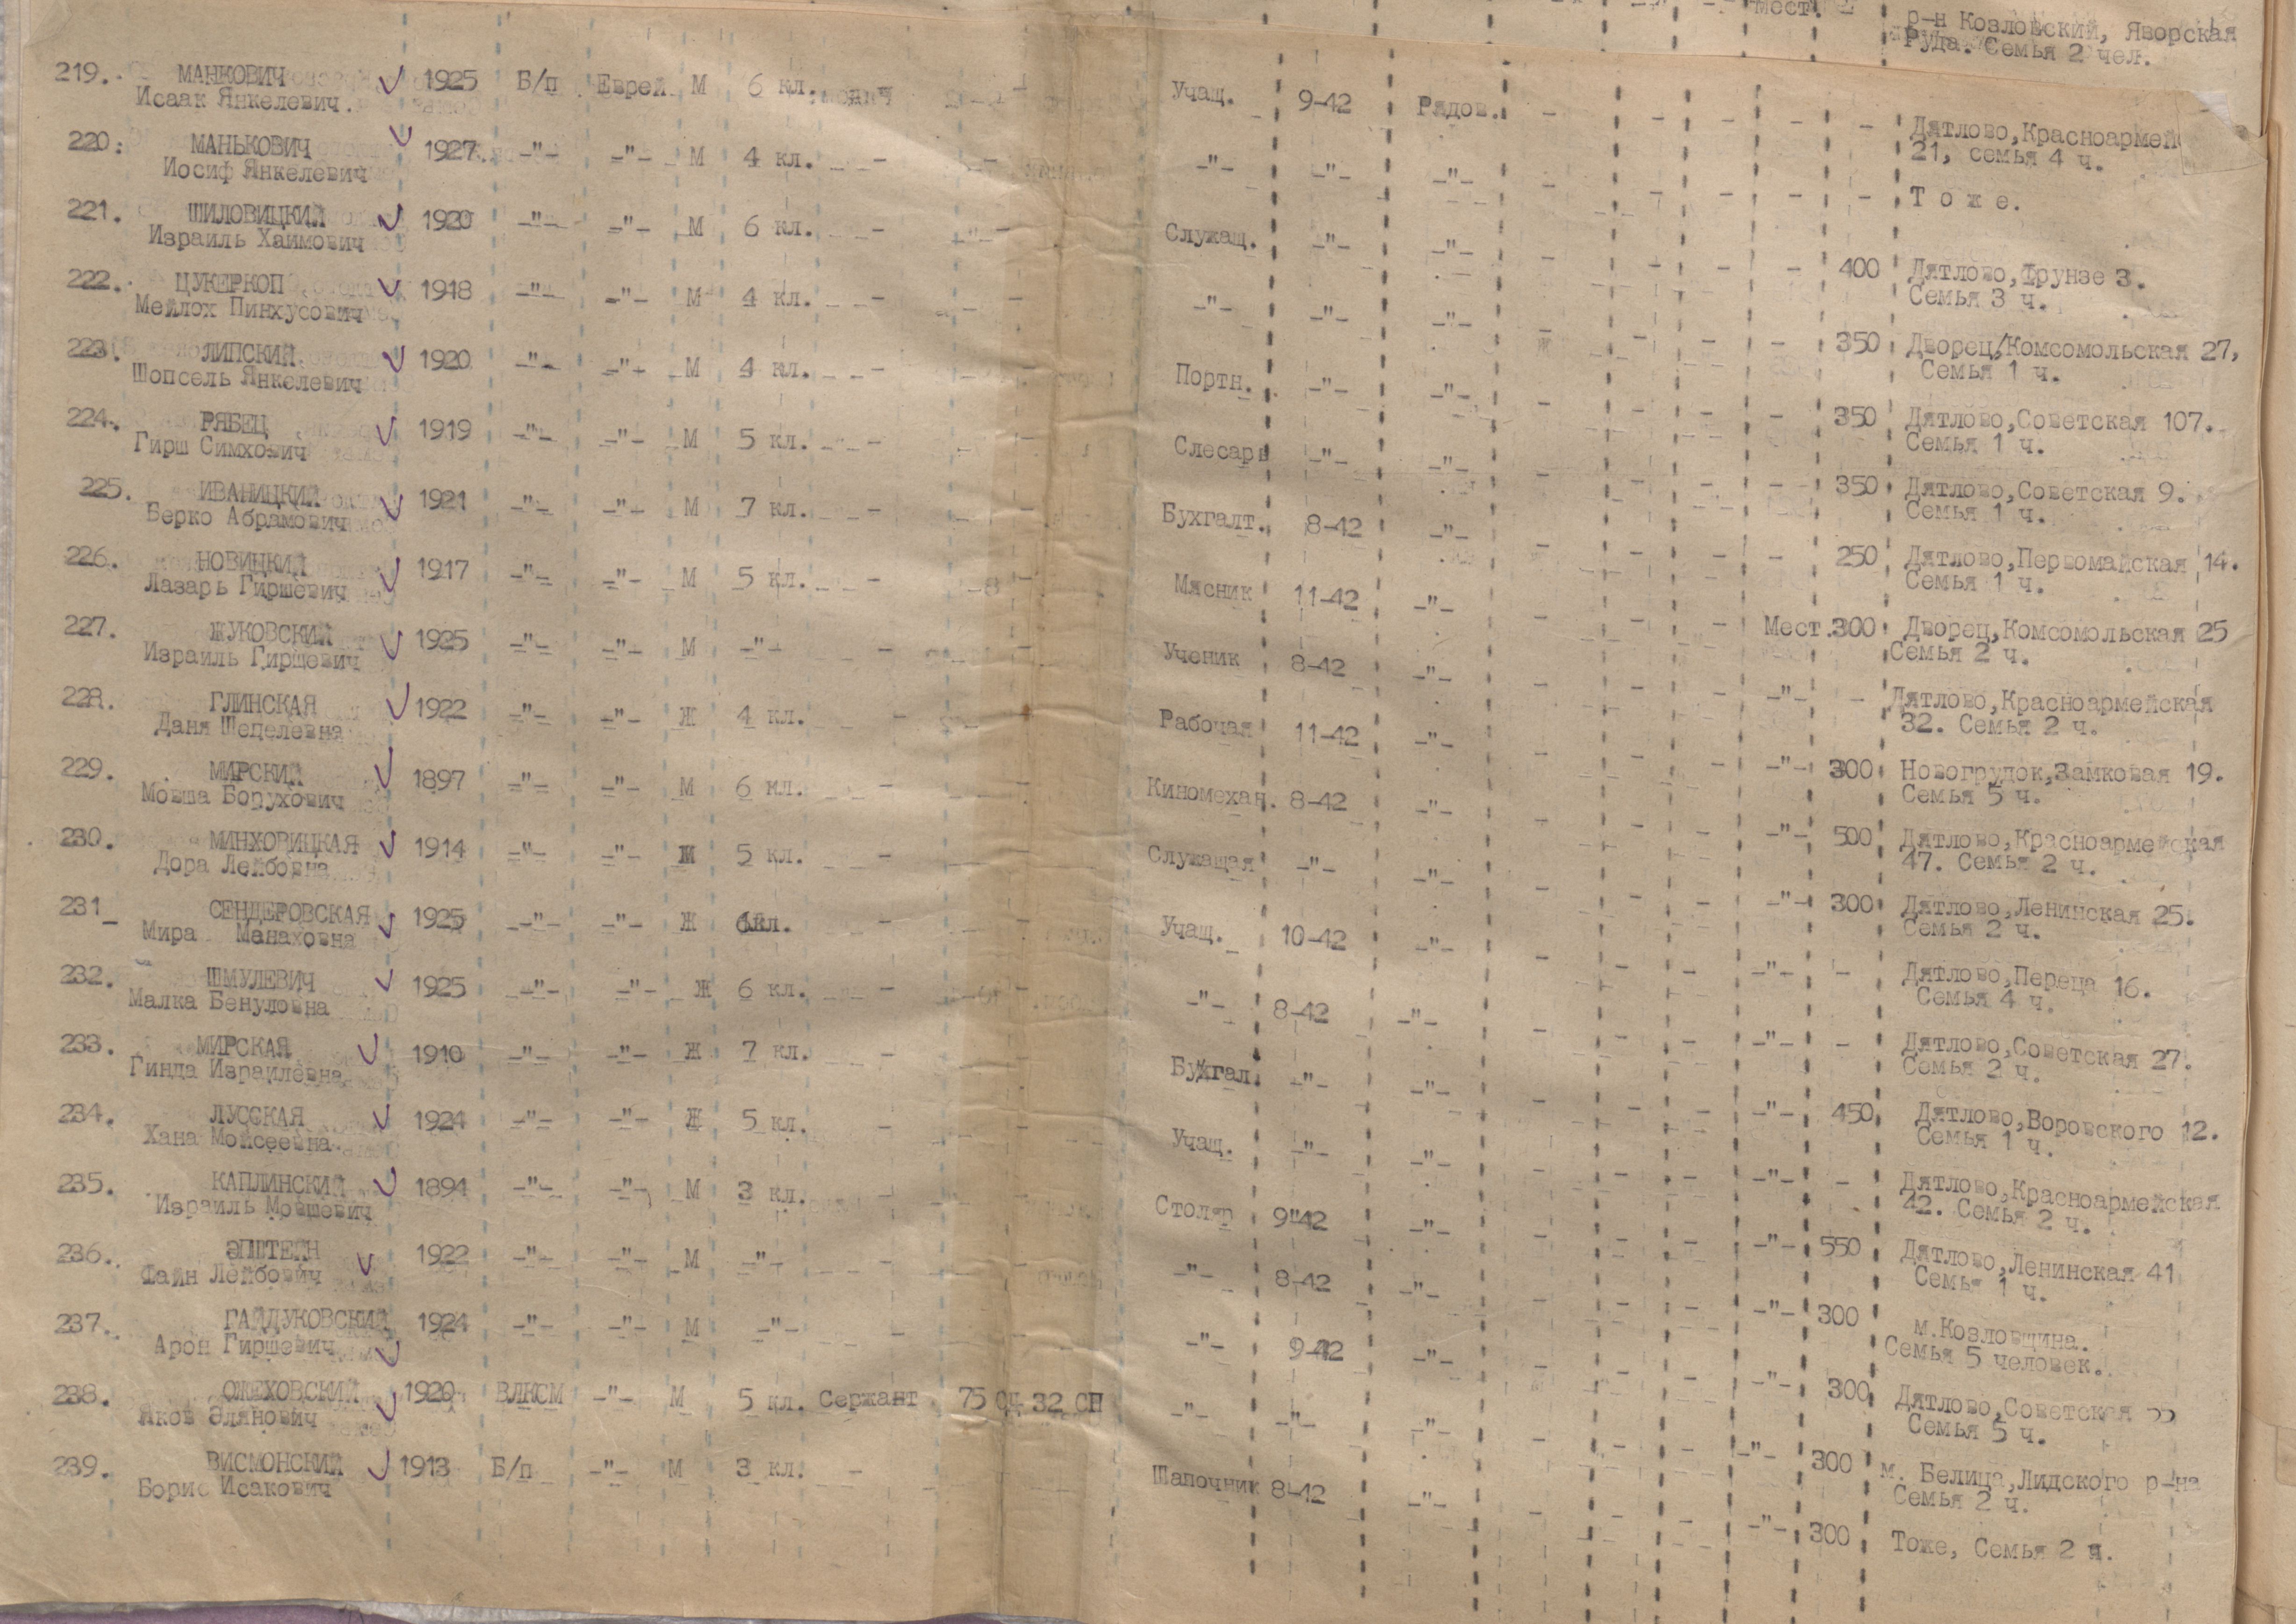 Мест.
р-н Козловский, Яворская
Руда. Семья 2 чел.
219. МАНКОВИЧ 1925 Б/п Еврей М 6 кл. - Учащ. 9-42 Рядов. - - - - - Дятлово,Красноармей
Исаак Янкелевич. 21, семья 4 ч.
220. МАНЬКОВИЧ 1927 -"- -"- М 4 кл. - - -"- -"- -"- - - - - - Т о ж е.
Иосиф Янкелевич
221. ШИЛОВИЦКИЙ 1920 -"- -"- М 6 кл. - - Служащ. -"- -"- - - - - 400 Дятлово,Фрунзе 3.
Израиль Хаимович Семья 3 ч.
222. ЦУКЕРКОП 1918 -"- -"- М 4 кл. - - -"- -"- -"- - - - - 350 Дворец,Комсомольская 27,
Мейлох Пинхусович Семья 1 ч.
223. ЛИПСКИЙ 1920 -"- -"- М 4 кл. - - Портн. -"- -"- - - - - 350 Дятлово,Советская 107.
Шопсель Янкелевич Семья 1 ч.
224. РЯБЕЦ 1919 -"- -"- М 5 кл. - - Слесарь -"- -"- - - - - 350 Дятлово,Советская 9.
Гирш Симхович Семья 1 ч.
225. ИВАНИЦКИЙ 1921 -"- -"- М 7 кл. - - Бухгалт. 8-42 -"- - - - - 250 Дятлово,Первомайская 14.
Берко Абрамович Семья 1 ч.
226. НОВИЦКИЙ 1917 -"- -"- М 5 кл. - - Мясник 11-42 -"- - - - Мест.300 Дворец,Комсомольская 25
Лазарь Гиршевич Семья 2 ч.
227. ЖУКОВСКИЙ 1925 -"- -"- М -"- - - Ученик 8-42 -"- - - - -"- - Дятлово,Красноармейская
Израиль Гиршевич 32. Семья 2 ч.
228. ГЛИНСКАЯ 1922 -"- -"- Ж 4 кл. - - Рабочая 11-42 -"- - - - -"- 300 Новогрудок,Замковая 19.
Даня Шепелевна Семья 5 ч.
229. МИРСКИЙ 1897 -"- -"- М 6 кл. - - Киномехан. 8-42 -"- - - - -"- 500 Дятлово,Красноармейская
Мовша Борухович 47. Семья 2 ч.
230. МИНХОВИЦКАЯ 1914 -"- -"- Ж 5 кл. - - Служащая -"- -"- - - - -"- 300 Дятлово,Ленинская 25.
Дора Лейбовна Семья 2 ч.
231_ СЕНДЕРОВСКАЯ 1925 -"- -"- Ж 6кл. - - Учащ. 10-42 -"- - - - -"- - Дятлово,Переца 16.
Мира Манаховна Семья 4 ч.
232. ШМУЛЕВИЧ 1925 -"- -"- Ж 6 кл. - - -"- 8-42 -"- - - - -"- - Дятлово,Советская 27.
Малка Бенуловна Семья 2 ч.
233. МИРСКАЯ 1910 -"- -"- Ж 7 кл. - - Бухгал. -"- -"- - - - -"- 450 Дятлово,Воровского 12.
Гинда Израилевна Семья 1 ч.
234. ЛУССКАЯ 1924 -"- -"- Ж 5 кл. - - Учащ. -"- -"- - - - -"- - Дятлово,Красноармейская
Хана Мойсеевна 42. Семья 2 ч.
235. КАПЛИНСКИЙ 1894 -"- -"- М 3 кл. - - Столяр 9"42 -"- - - - -"- 550 Дятлово,Ленинская 41
Израиль Мовшевич Семья 1 ч.
236. ЭПШТЕЙН 1922 -"- -"- М -"- - - -"- 8-42 -"- - - - -"- 300 м.Козловщина.
Файн Лейбович Семья 5 человек.
237. ГАЙДУКОВСКИЙ 1924 -"- -"- М -"- - - -"- 9-42 -"- - - - -"- 300 Дятлово,Советская 55
Арон Гиршевич Семья 5 ч.
238. ОЖЕХОВСКИЙ 1920 ВЛКСМ -"- М 5 кл. Сержант 75 СД 32 СП -"- -"- -"- - - - -"- 300 м. Белица,Лидского р-на
Яков Элянович Семья 2 ч.
239. ВИСМОНСКИЙ 1913 Б/п -"- М 3 кл. - Шапочник 8-42 -"- - - - -"- 300 Тоже, Семья 2 ч.
Борис Исакович